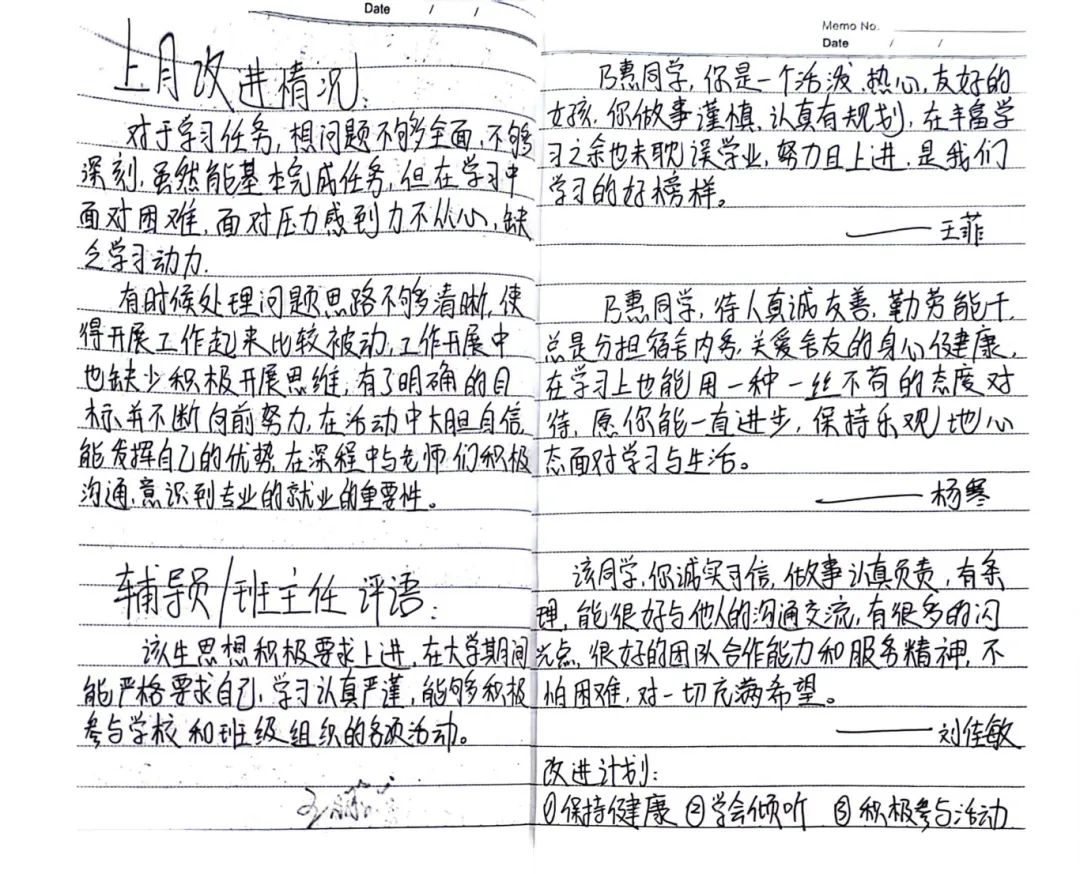 Date / /
上月改进情况:
对于学习任务,想问题不够全面,不够
深刻,虽然能基本完成任务,但在学习中
面对困难,面对压力感到力不从心,缺
乏学习动力.
有时候处理问题思路不够清晰,使
得开展工作起来比较被动,工作开展中
也缺少积极开展思维,有了明确的目
标并不断向前努力,在活动中大胆自信,
能发挥自己的优势,在深程中与老师们积极
沟通,意识到专业的就业的重要性。
辅导员/班主任评语:
该生思想积极要求上进,在大学期间
能严格要求自己,学习认真严谨,能够积极
参与学校和班级组织的各项活动。
Memo No.
Date / /
乃惠同学,你是一个活泼、热心,友好的
女孩,你做事谨慎、认真有规划,在丰富学
习之余也未耽误学业,努力且上进,是我们
学习的好榜样。
——王菲
乃惠同学,待人真诚友善,勤劳能干,
总是分担宿舍内务,关爱舍友的身心健康,
在学习上也能用一种一丝不苟的态度对
待,愿你能一直进步,保持乐观地心
态面对学习与生活。
——杨寒
该同学,你诚实习信,做事认真负责,有条
理,能很好与他人的沟通交流,有很多的闪
光点,很好的团队合作能力和服务精神,不
怕困难,对一切充满希望。
——刘佳敏
改进计划:
①保持健康 ②学会倾听 ③积极参与活动